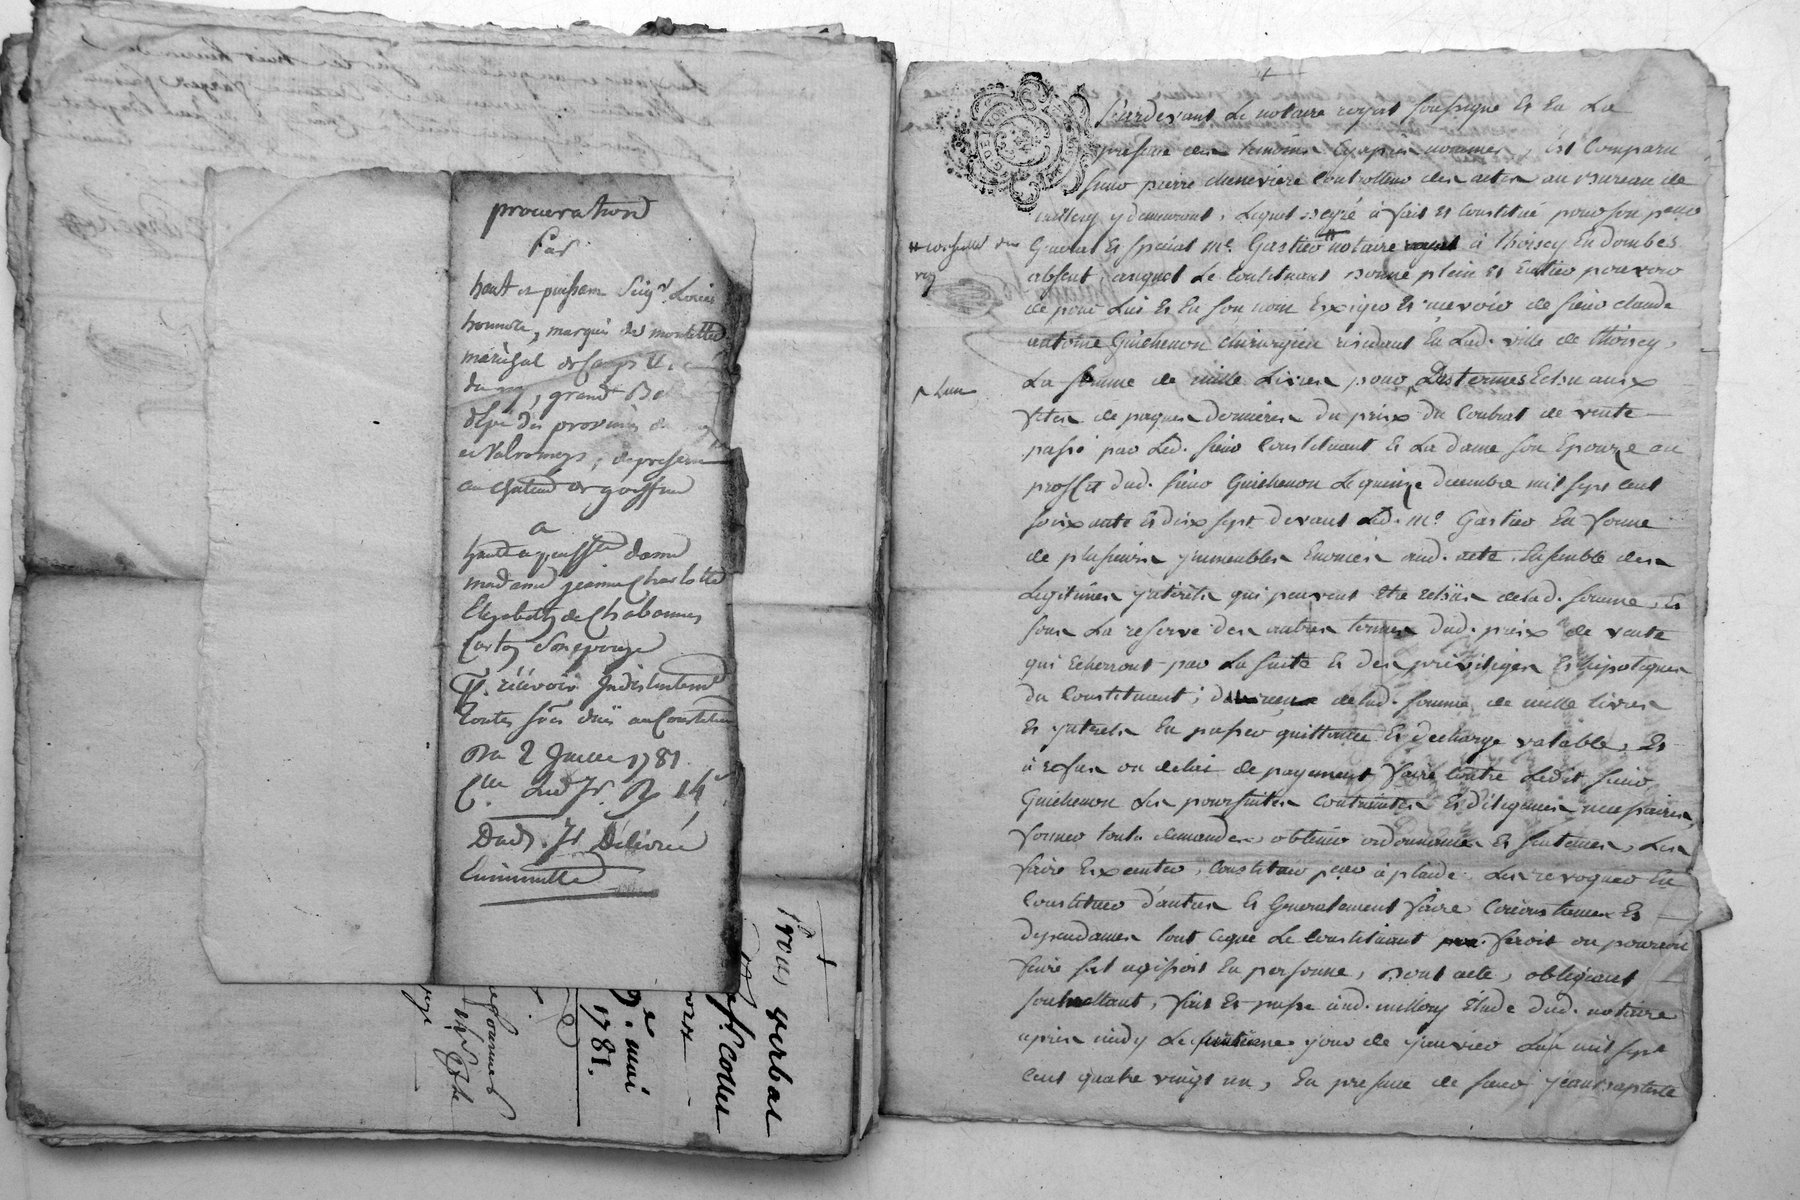 procuration
Par
haut et puissant Seigr. Louis
honnoré, marquis de montillet
maréchal de Camps
du roy, grand
d'épé des provinces de
et Valromey, de présent
au château de
a
haute et puisste dame
madame jeanne Charlotte
Elizabeth de Chabannes
Curton Son epouze
Pr. recevoir Indistinctemt
toutes sommes dües au Constituant
Du 2 Juillet 1781.
Dud. Jr. Délivré
Procès verbal
mai
1781.
Pardevant Le notaire royal soussigné Et En La
presence des temoins cy après nommés, est Comparu
sieur pierre chenevière Controlleur des actes au Bureau de
millery y demeurant, Lequel de gré à fait et Constitué pour son procr
General Et special Me. Gastier notaire à thoissey En dombes
absent, auquel Le Constituant Donne plein Et Entier pouvoir
de pour Lui Et En son nom Exiger Et recevoir de sieur claude
antoine Guichenon chirurgien residant En Lad. ville de thoissey,
La somme de mille Livres pour Des termes Echu aux
fêtes de paques dernieres du prix du Contrat de vente
passé par Led. sieur Constituant Et La dame son Epouze au
proffit dud. sieur Guichenon Le quinze decembre mil sept cent
soixante et dix sept devant Led. Me. Gastier En forme
de plusieurs immeubles Enoncés aud. acte. Ensemble des
Legitimes interets qui peuvent etre echus de lad. somme, Et
sous La reserve des autres termes dud. prix de vente
qui echerront par La suite Et des privileges Et hipoteques
du Constituant; du recu de lad. somme de mille livres
Et interets En passer quittance Et decharge valable, Et
à refus ou delai de payement faire Contre Ledit sieur
Guichenon Les poursuites Contraintes Et diligences necessaires,
former toutes demandes, obtenir ordonnances Et sentences, Les
faire Executer, Constituer procr à plaids, Les revoquer En
Constituer d'autres Et Generalement faire Circonstances Et
dependances tout ceque Le Constituant feroit ou pourroit
faire s'il agissoit En personne, Dont acte, obligeant
soumettant, fait Et passé aud. millery Etude dud. notaire
après midy Le jour de janvier L'an mil sept
cent quatre vingt un, En presence de sieur jean baptiste